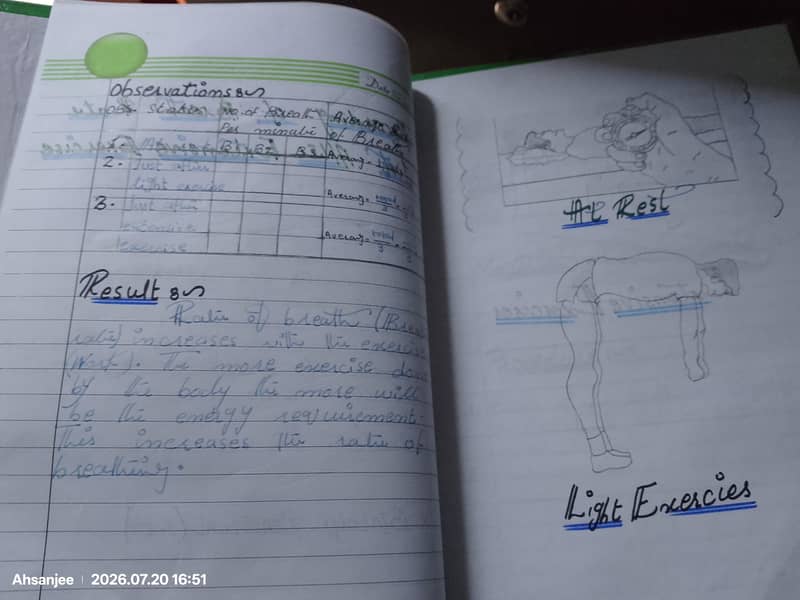 Observations :~
S. station no. of Breath Average Rate
Per minute of Breath
B1 B2 B3 Average =
2. Just after
light exercise
Average = /3
3. Just after
extensive
exercise
Average = /3
Result :~
Ratie of breath (Brea
ratie) increases with the exercise
(Work). The more exercise don
by the body the more will
be the energy requirement.
This increases the ratie of
breathing.
At Rest
Light Exercies
Date
Ahsanjee | 2026.07.20 16:51